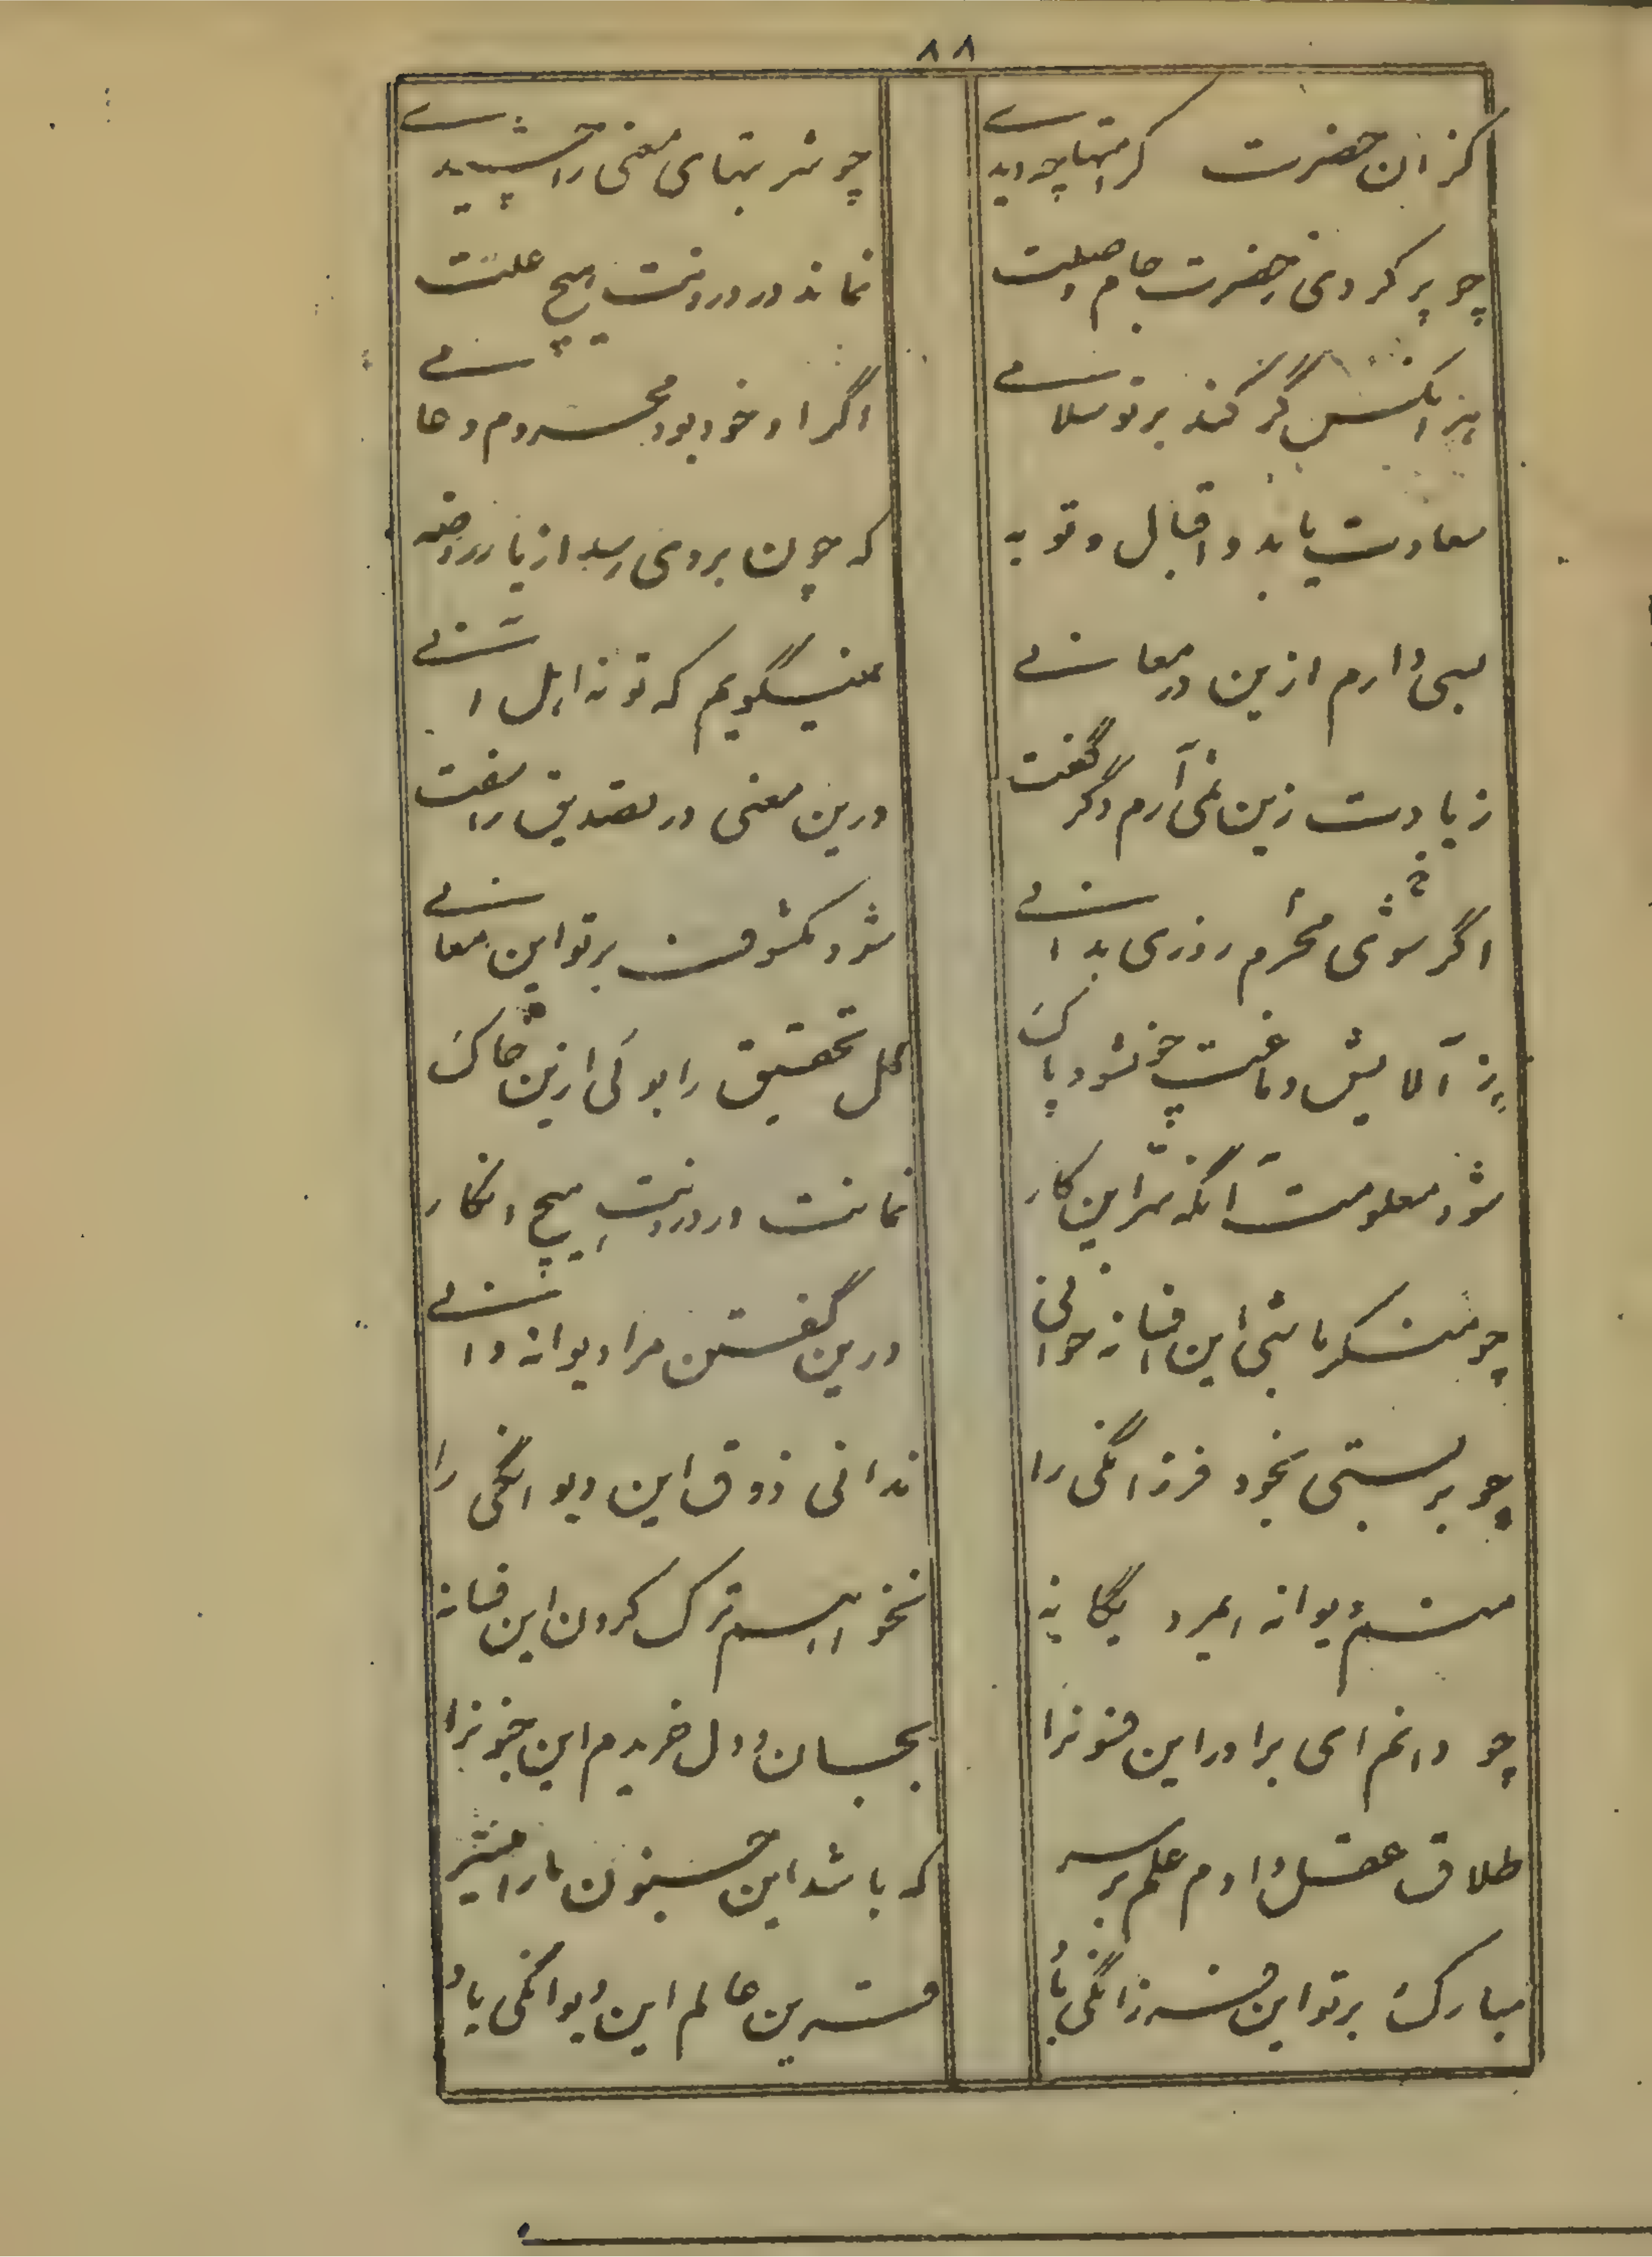 ۸۸
کزان حضرت کرامتها چو دیدی چو شربتهای معنی را چشیدی
چو پر کردی ز حضرت جام وصلت نماند در درونت هیچ علت
هر انکس گر کند بر تو سلامے اگر او خود بود محروم و عامے
سعادت یابد و اقبال و توبه که چون بروی رسد از یار روضه
بسی دارم ازین در معانے نمیگویم که تو نه اهل انے
زیادت زین نمی آرم دگر گفت درین معنی در تصدیق را سفت
اگر شوی محرم روزی بدانے شود مکشوفت بر تو این معانے
ز آلایش دماغت چو شود پاک گل تحقیق را بوئی ازین خاک
شود معلومت آنگه سر این کار نمانت در درونت هیچ انکار
چو منکر باشی این افسانه خوانی درین گفتن مرا دیوانه دانے
چو بربستی بخود فرزانگی را ندانی ذوق این دیوانگی را
منم دیوانه ایمرد یگانه نخواهیم ترک کردن این فسانه
چو دانم ای برادر این فنونرا بجان و دل خریدم این جنونرا
طلاق عقل دادم علم بر سر که باشد این جنون مارا
مبارک بر تو این فرزانگی باد قرین حالم این دیوانگی باد